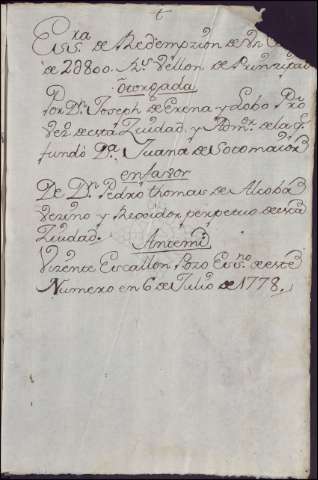 t
Essra de Redempzion de Un
de 2d800. Rs. Vellon de Prinzipal
Otorgada
Por Dn. Joseph de Erena y Lobo Pro
vez. de esta Ziudad y Admor. de la q
fundó Da. Juana de Sotomaior
en favor
De Dn. Pedro thomas de Alcoba
Vezino y Rexidor perpetuo de esta
Ziudad.
Antemi
Vizente Escallon Pozo Essno. de este
Numero en 6 de Julio de 1778.